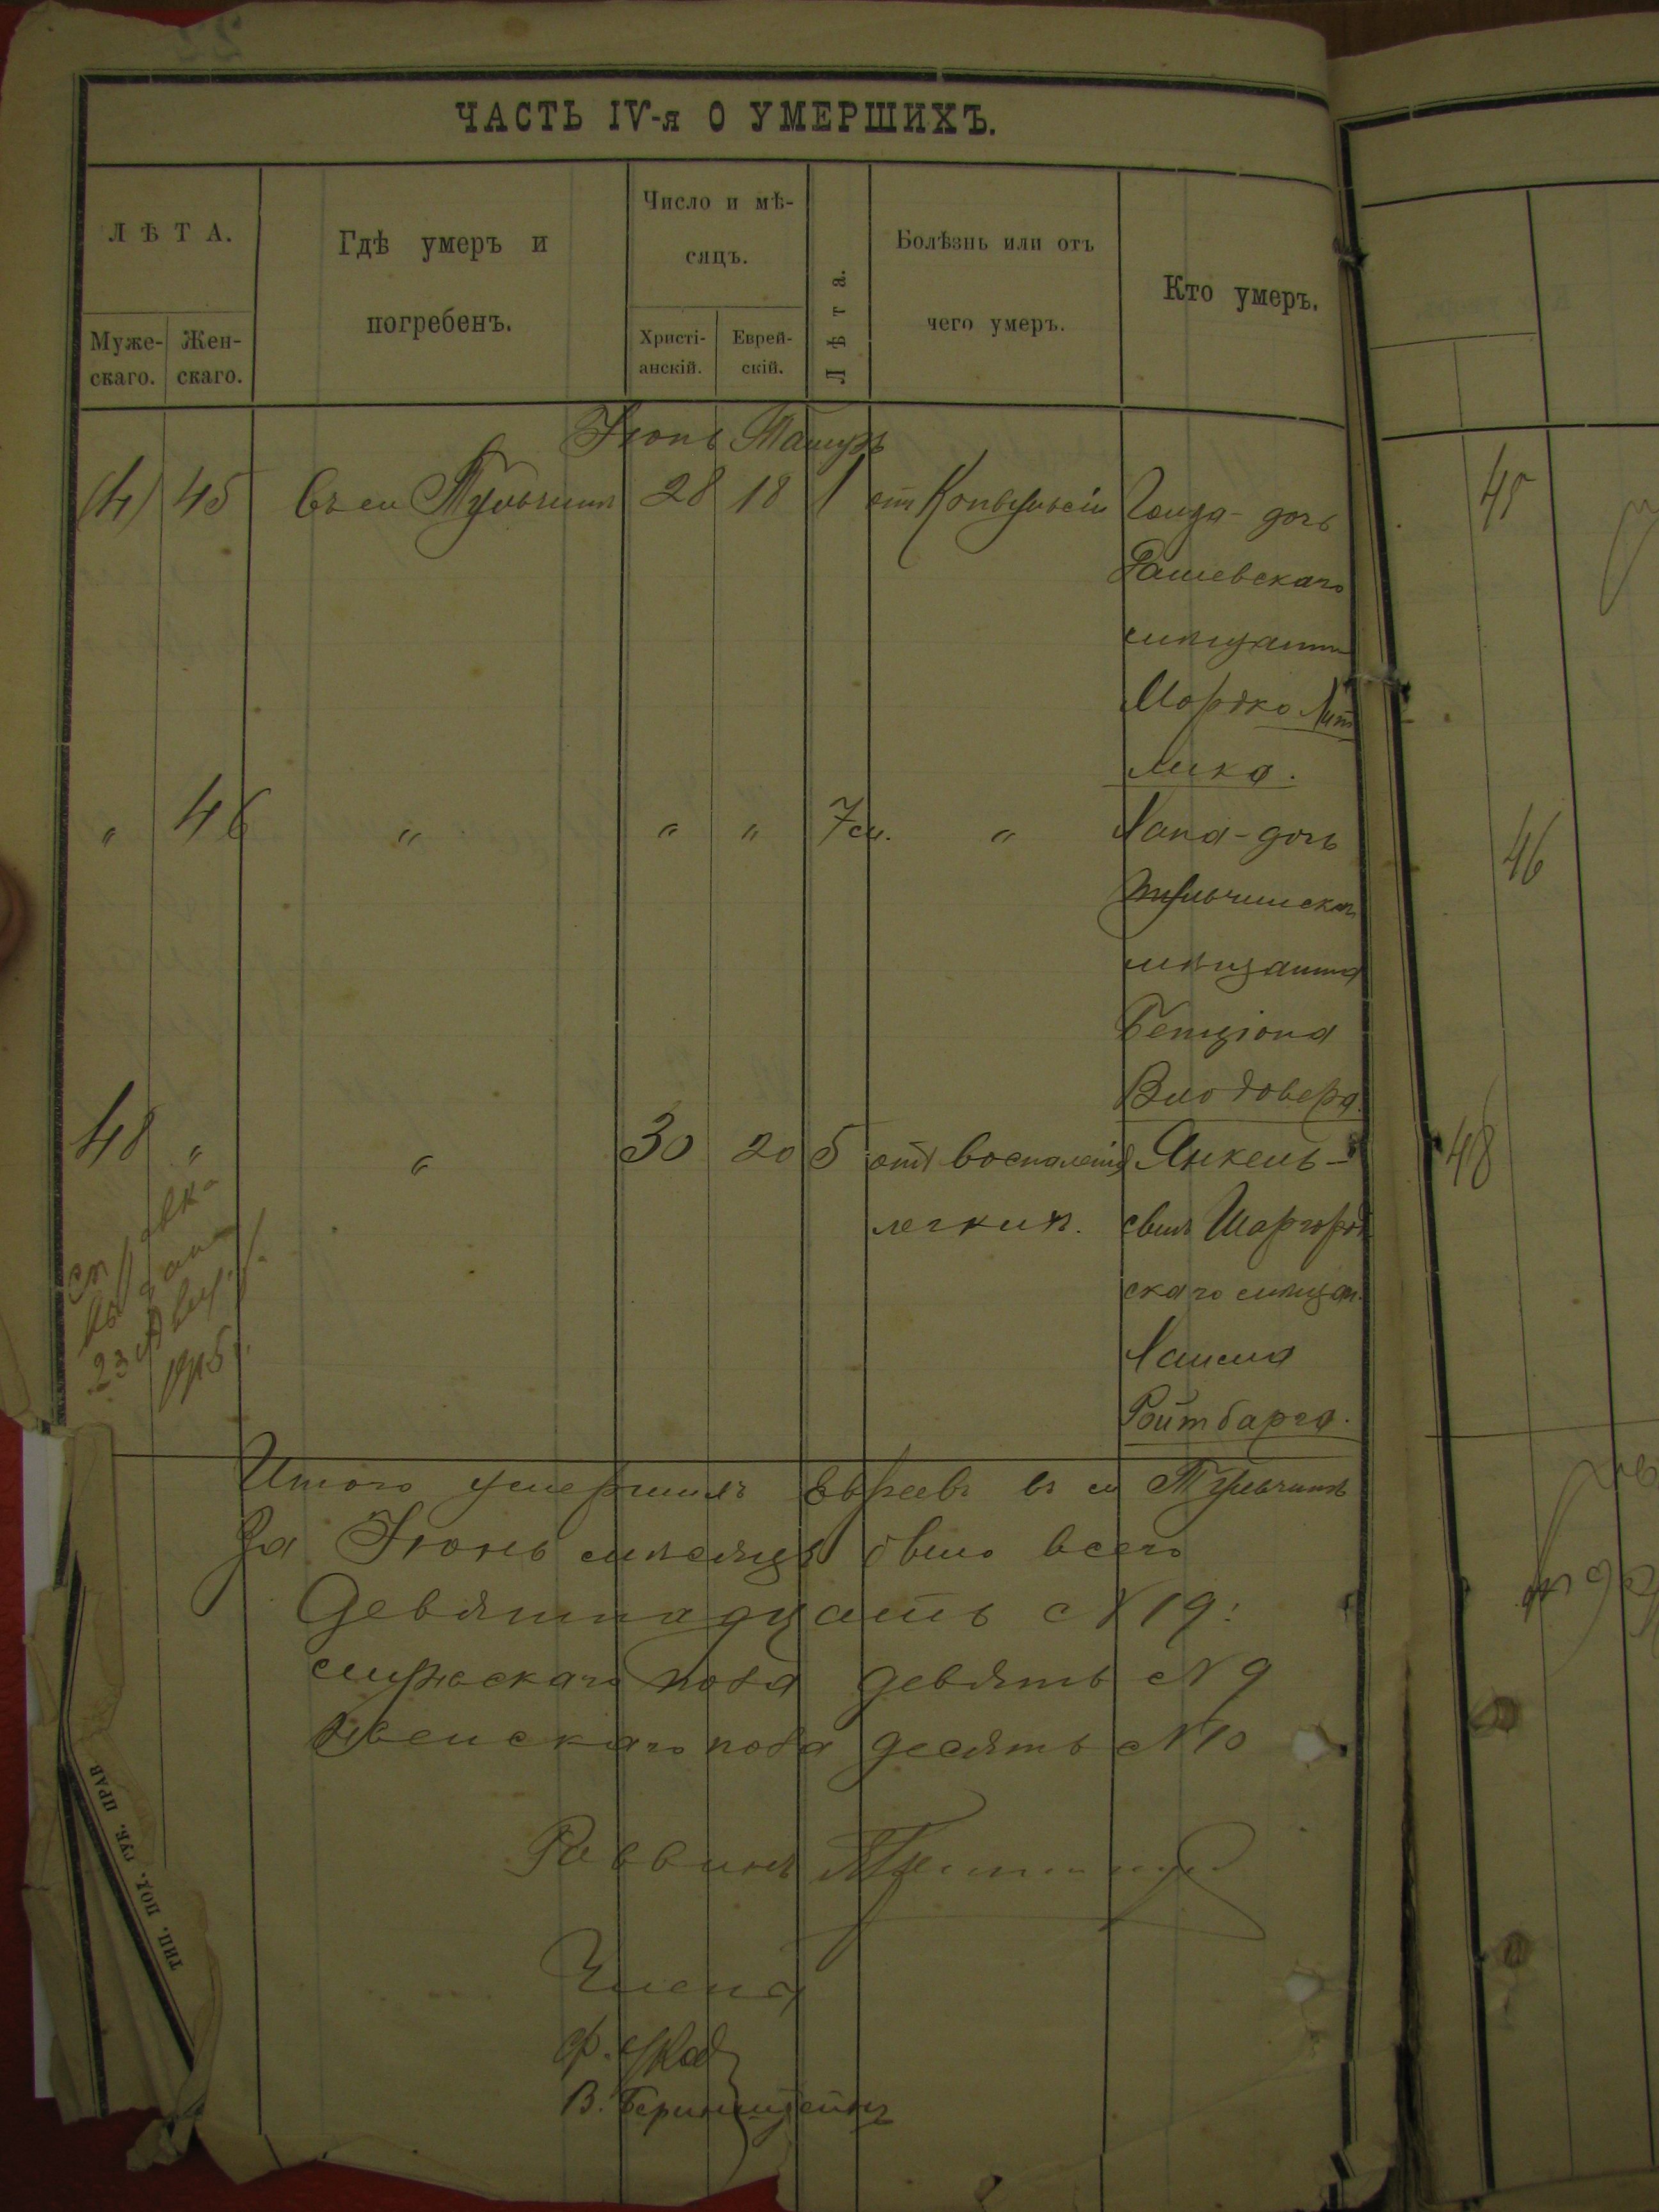 ЧАСТЬ IV-я О УМЕРШИХЪ.
ЛѢТА.
Муже-
скаго.
Жен-
скаго.
Гдѣ умеръ и
погребенъ.
Число и мѣ-
сяцъ.
Христі-
анскій.
Еврей-
скій.
Лѣта.
Болѣзнь или отъ
чего умеръ.
Кто умеръ.
Іюнь Тамузъ
45 въ м Тульчинѣ 28 18 1 от Конвульсіи дочь
45
Рашевскаго
мѣщанина
Мордко Лит
лика.
" 46 " " " 7 м. " Хана - дочь
46
тульчинскаго
мѣщанина
Бенціона
Влодовера.
48 " " 30 20 5 отъ воспаленія Янкель -
48
легкихъ. сынъ Шаргород
скаго мѣщан.
Хаима
Ройтбарга.
выдана
23 Авг.
1915 г.
Итого умершихъ Евреевъ въ м Тульчинѣ
За Іюнь мѣсяцъ было всего
Девятнадцать № 19:
мужескаго пола девять № 9
женскаго пола десять № 10
Раввинъ
Члены
В. Беринштейнъ
ТИП. ПОД. ГУБ. ПРАВ